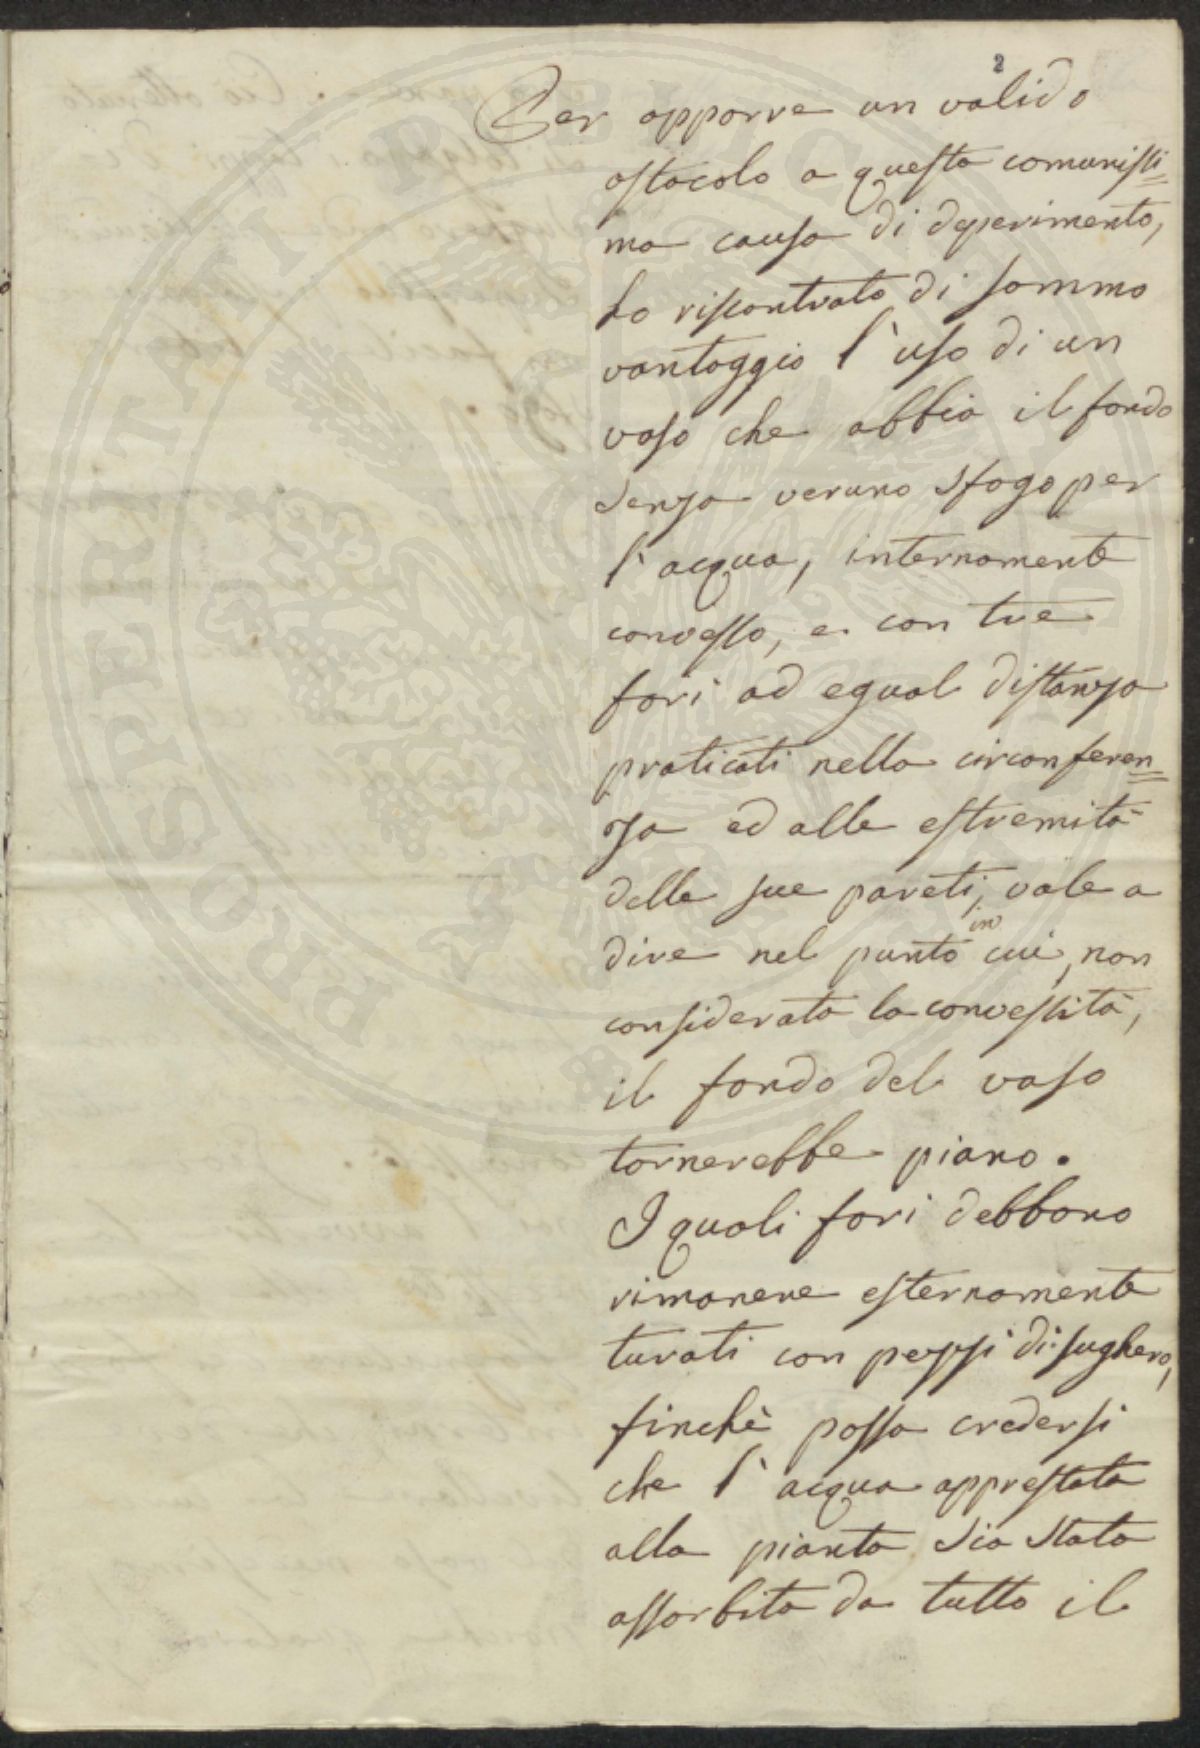 2
Per opporre un valido
ostacolo a questa comunissi=
ma causa di deperimento,
ho riscontrato di sommo
vantaggio l'uso di un
vaso che abbia il fondo
senza veruno sfogo per
l'acqua, internamente
convesso, e con tre
fori ad egual distanza
praticati nella circonferen=
za ed alle estremità
delle sue pareti, vale a
dire nel punto in cui, non
considerata la convessità,
il fondo del vaso
tornerebbe piano.
I quali fori debbono
rimanere esternamente
turati con pezzi di sughero,
finchè possa credersi
che l'acqua apprestata
alla pianta sia stata
assorbita da tutto il
PROSPERITATI PUBLICAE